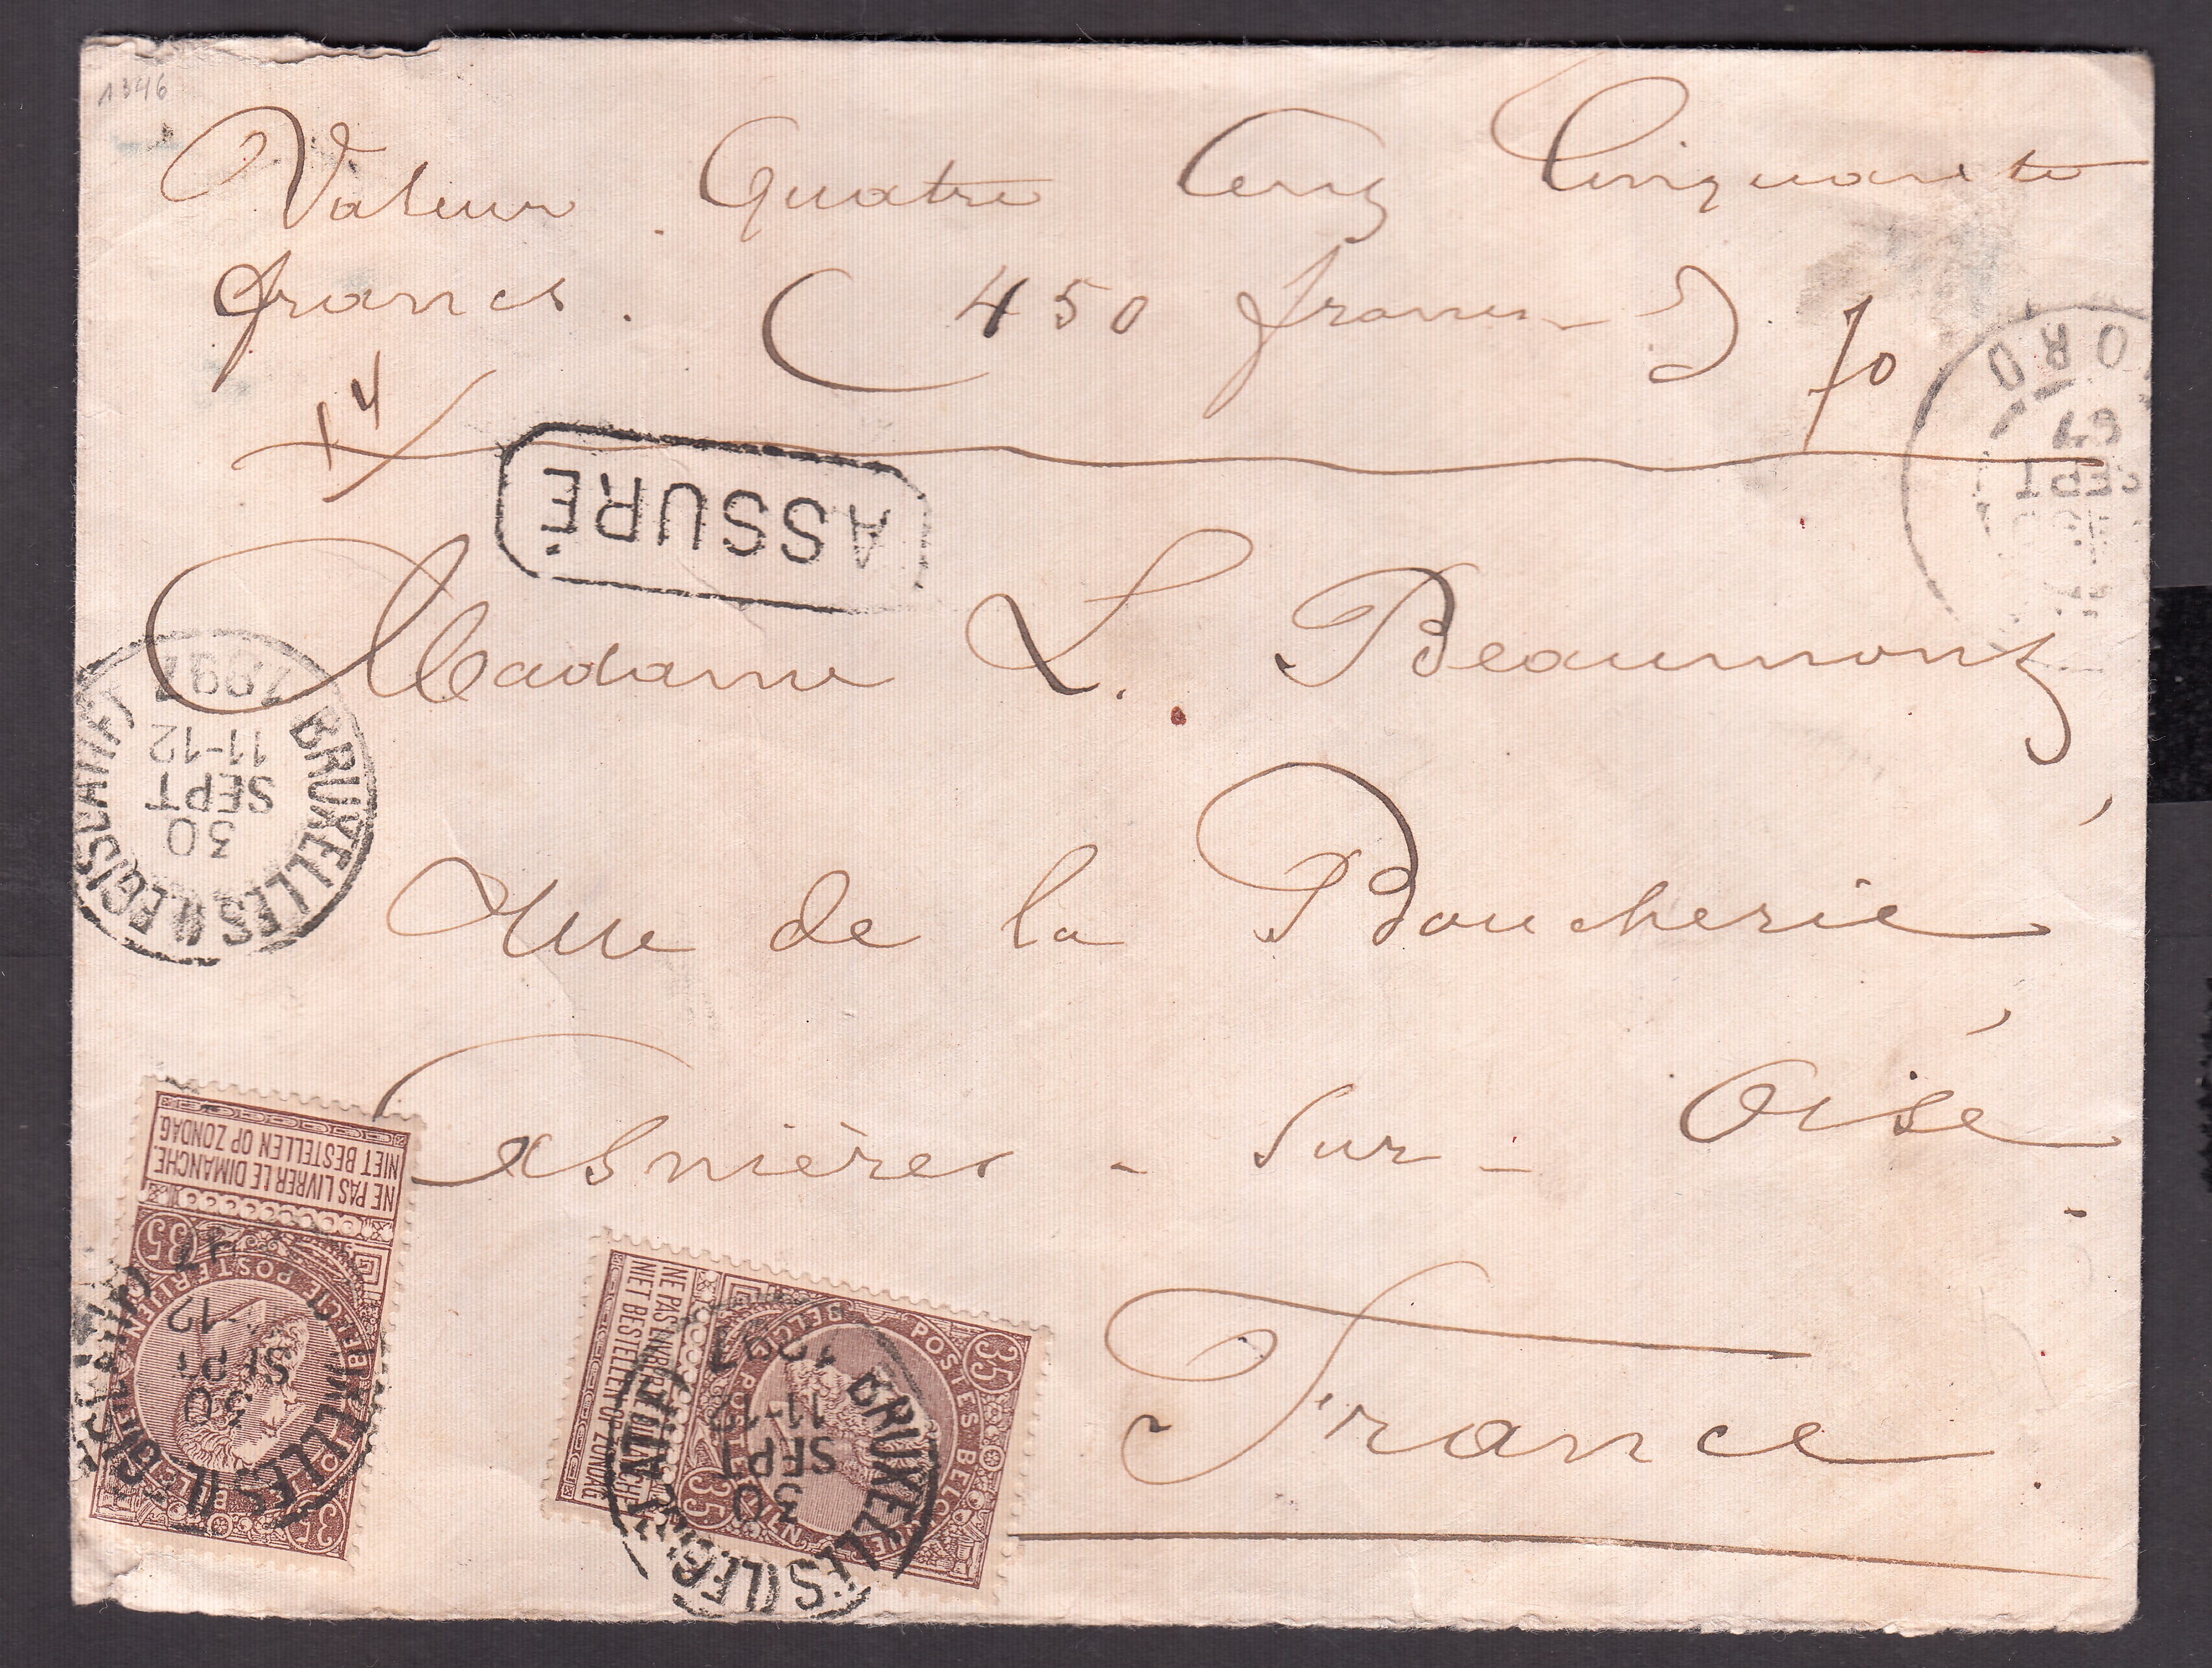 1346
Valeur . Quatre Cent Cinquante
francs . ( 450 francs ) . 70
14
ASSURÉ
ORD
SEPT
Madame L. Beaumont,
BRUXELLES (LEGISLATIF)
30
SEPT
11-12
1897
rue de la Boucherie,
Asnières - sur - Oise
France
NE PAS LIVRER LE DIMANCHE
NIET BESTELLEN OP ZONDAG
35
BRUXELLES (LEGISLATIF)
30
SEPT
NE PAS LIVRER LE DIMANCHE
NIET BESTELLEN OP ZONDAG
POSTES BELGIQUE
35
35
BRUXELLES (LEGISLATIF)
30
SEPT
11-12
1897